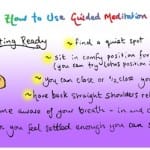 How to Use Guided Meditation
ting Ready
~ find a quiet spot
~ sit in comfy position for
(you can try lotus positi
~ you can close or ½ close you
~ have back straight shoulders rel
me aware of your breath - in and o
you feel settled enough you can s